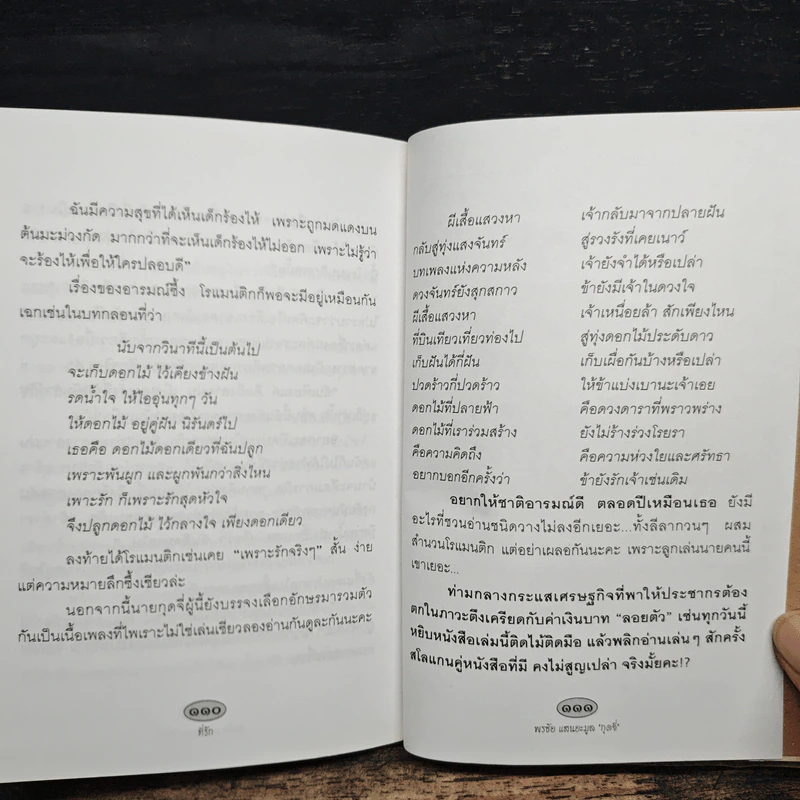 ฉันมีความสุขที่ได้เห็นเด็กร้องไห้ เพราะถูกมดแดงบน
ต้นมะม่วงกัด มากกว่าที่จะเห็นเด็กร้องไห้ไม่ออก เพราะไม่รู้ว่า
จะร้องไห้เพื่อให้ใครปลอบดี”
เรื่องของอารมณ์ซึ้ง โรแมนติกก็พอจะมีอยู่เหมือนกัน
เฉกเช่นในบทกลอนที่ว่า
นับจากวินาทีนี้เป็นต้นไป
จะเก็บดอกไม้ ไว้เคียงข้างฝัน
รดน้ำใจ ให้ไออุ่นทุกๆ วัน
ให้ดอกไม้ อยู่คู่ฝัน นิรันดร์ไป
เธอคือ ดอกไม้ดอกเดียวที่ฉันปลูก
เพราะพันผูก และผูกพันกว่าสิ่งไหน
เพาะรัก ก็เพราะรักสุดหัวใจ
จึงปลูกดอกไม้ ไว้กลางใจ เพียงดอกเดียว
ลงท้ายได้โรแมนติกเช่นเคย “เพราะรักจริงๆ” สั้น ง่าย
แต่ความหมายลึกซึ้งเชียวล่ะ
นอกจากนี้นายกุดจี่ผู้นี้ยังบรรจงเลือกอักษรมารวมตัว
กันเป็นเนื้อเพลงที่ไพเราะไม่ใช่เล่นเชียวลองอ่านกันดูละกันนะคะ
๑๑๐
ที่รัก
ผีเสื้อแสวงหา เจ้ากลับมาจากปลายฝัน
กลับสู่ทุ่งแสงจันทร์ สู่รวงรังที่เคยเนาว์
บทเพลงแห่งความหลัง เจ้ายังจำได้หรือเปล่า
ดวงจันทร์ยังสุกสกาว ข้ายังมีเจ้าในดวงใจ
ผีเสื้อแสวงหา เจ้าเหนื่อยล้า สักเพียงไหน
ที่บินเทียวเที่ยวท่องไป สู่ทุ่งดอกไม้ประดับดาว
เก็บฝันได้กี่ฝัน เก็บเผื่อกันบ้างหรือเปล่า
ปวดร้าวกี่ปวดร้าว ให้ข้าแบ่งเบานะเจ้าเอย
ดอกไม้ที่ปลายฟ้า คือดวงดาราที่พราวพร่าง
ดอกไม้ที่เราร่วมสร้าง ยังไม่ร้างร่วงโรยรา
คือความคิดถึง คือความห่วงใยและศรัทธา
อยากบอกอีกครั้งว่า ข้ายังรักเจ้าเช่นเดิม
อยากให้ชาติอารมณ์ดี ตลอดปีเหมือนเธอ ยังมี
อะไรที่ชวนอ่านชนิดวางไม่ลงอีกเยอะ...ทั้งลีลากวนๆ ผสม
สำนวนโรแมนติก แต่อย่าเผลอกันนะคะ เพราะลูกเล่นนายคนนี้
เขาเยอะ...
ท่ามกลางกระแสเศรษฐกิจที่พาให้ประชากรต้อง
ตกในภาวะตึงเครียดกับค่าเงินบาท “ลอยตัว” เช่นทุกวันนี้
หยิบหนังสือเล่มนี้ติดไม้ติดมือ แล้วพลิกอ่านเล่นๆ สักครั้ง
สโลแกนคู่หนังสือที่มี คงไม่สูญเปล่า จริงมั้ยคะ!?
๑๑๑
พรชัย แสนยะมูล "กุดจี่"